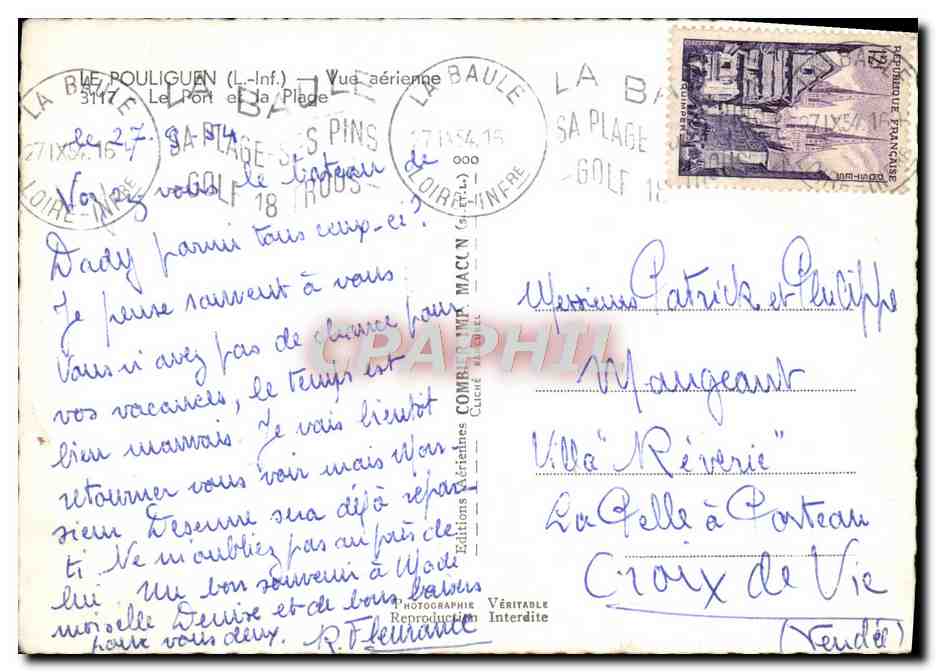 LE POULIGUEN (L.-Inf.) — Vue aérienne
3117 Le Port et la Plage
LA BAULE
27 IX 54.16
LOIRE-INFRE
LA BAULE
SA PLAGE-SES PINS
GOLF 18 TROUS
LA BAULE
27 IX 54.16
LOIRE-INFRE
LA BA
SA PLAGE
GOLF 18
REPUBLIQUE FRANÇAISE
12F
QUIMPER
le 27.9.54
Voyez vous le bateau de
Dady parmi tous ceux-ci?
Je pense souvent à vous
Vous n'avez pas de chance pour
vos vacances, le temps est
bien mauvais. Je vais bientôt
retourner vous voir mais Mon-
sieur Desenne sera déjà repar-
ti Ne m'oubliez pas auprès de
lui Un bon souvenir à Made
moiselle Denise et de bons baisers
pour vous deux. R. Fleurance
Editions Aériennes COMBIER IMP. MACON (S.-ET-L.)
CLICHÉ NATUREL
CPAPHIL
Messieurs Patrick et Philippe
Mangeant
Villa "Rêverie"
La Pelle à Porteau
Croix de Vie
(Vendée)
PHOTOGRAPHIE VÉRITABLE
Reproduction Interdite